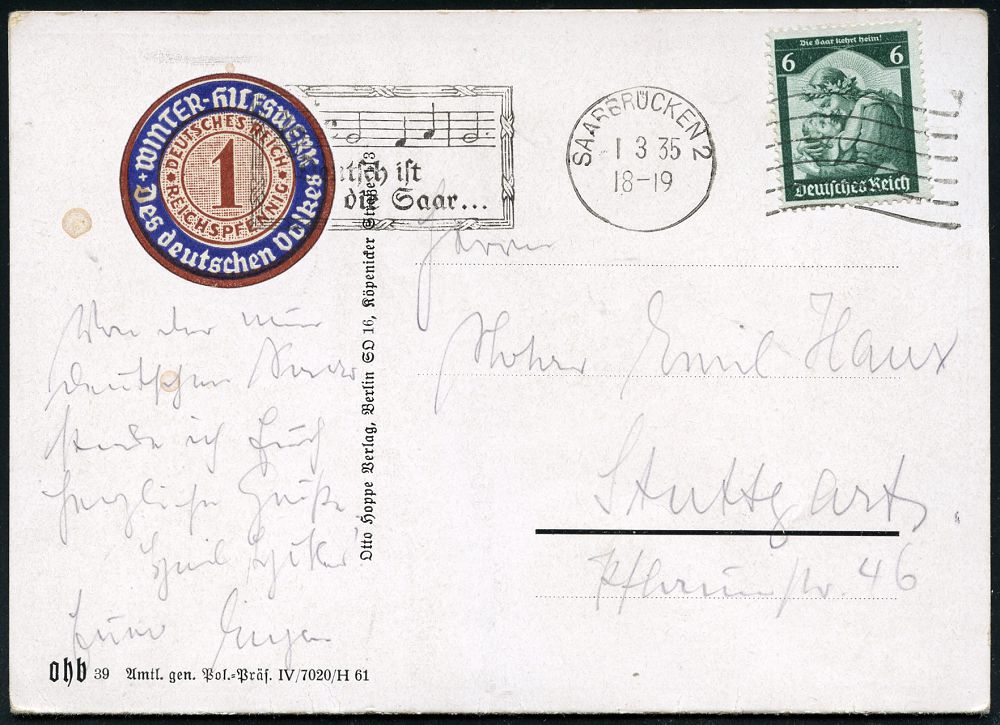 Die Saar kehrt heim!
6 6
Deutsches Reich
SAARBRÜCKEN 2
1 3 35
18-19
Deutsch ist
die Saar...
Winter-Hilfswerk
Des deutschen Volkes
DEUTSCHES REICH
1
REICHSPFENNIG
Herrn
Emil Haux
Stuttgart
46
Von der nun
deutschen Saar
sende ich Euch
herzliche Grüße
Heil Hitler
Euer Eugen
Otto Hoppe Verlag, Berlin SO 16, Köpenicker Straße 113
ohb 39 Amtl. gen. Pol.-Präs. IV/7020/H 61